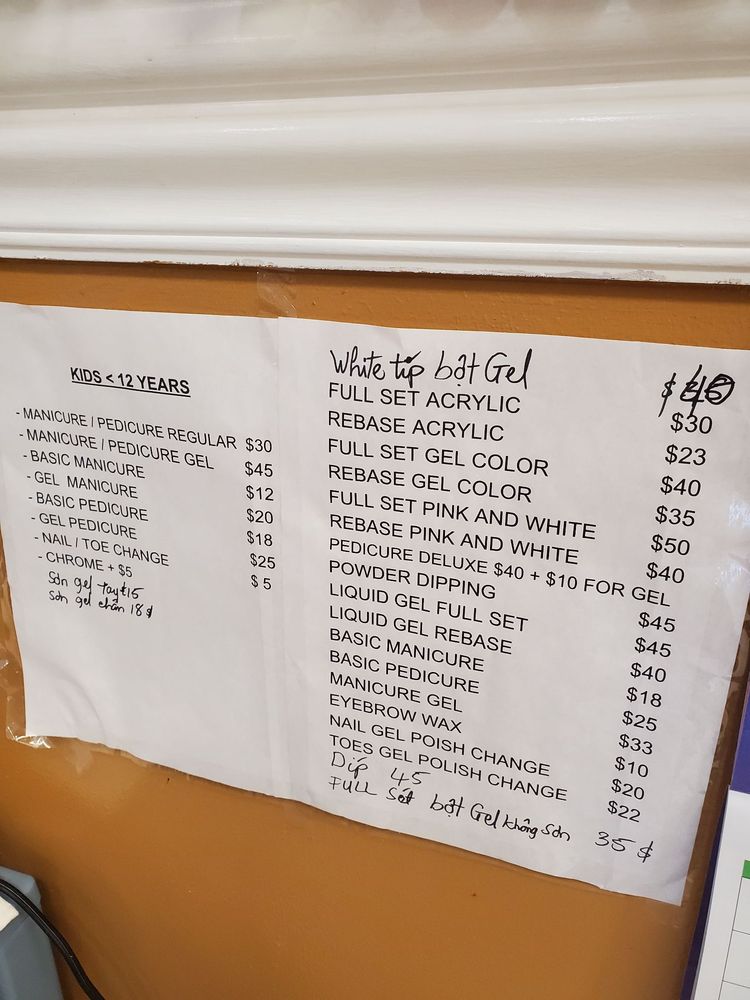 KIDS < 12 YEARS
- MANICURE / PEDICURE REGULAR $30
- MANICURE / PEDICURE GEL $45
- BASIC MANICURE $12
- GEL MANICURE $20
- BASIC PEDICURE $18
- GEL PEDICURE $25
- NAIL / TOE CHANGE $ 5
- CHROME + $5
Sơn gel tay $15
Sơn gel chân 18 $
White tip bột Gel
FULL SET ACRYLIC $30
REBASE ACRYLIC $23
FULL SET GEL COLOR $40
REBASE GEL COLOR $35
FULL SET PINK AND WHITE $50
REBASE PINK AND WHITE $40
PEDICURE DELUXE $40 + $10 FOR GEL
POWDER DIPPING $45
LIQUID GEL FULL SET $45
LIQUID GEL REBASE $40
BASIC MANICURE $18
BASIC PEDICURE $25
MANICURE GEL $33
EYEBROW WAX $10
NAIL GEL POISH CHANGE $20
TOES GEL POLISH CHANGE $22
Dip 45
FULL Sét bột Gel không sơn 35 $